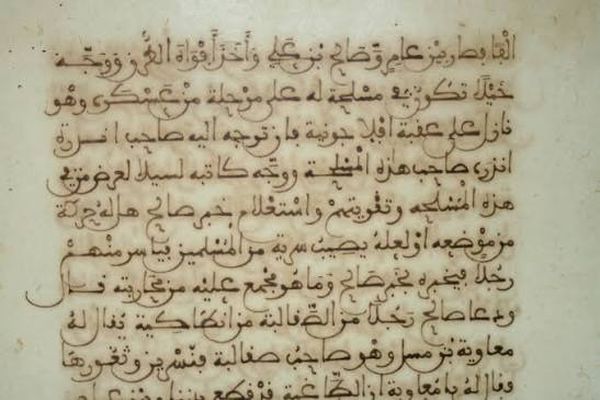 الفا فصار بين عامر وصالح بن علي وأخذ أفواه الطرق ووجّه
خيلا تكون في مسلحة له على مرحلة من عسكره وهو
نازل على عقبة افلاجونية فان توجه اليه صاحب انقرة
انذره صاحب هذه المسلحة ووجّه كاتبه لعرض من في
هذه المسلحة وتقويتهم واستعلام خبر صالح هل له حركة
من موضعه أو لعله يصيب سرية من المسلمين فياسر منهم
رجلا فيخبره بخبر صالح وما هو مجمع عليه من محاربته قال
ودعا صالح رجلا من الصقالبة من انطاكية يقال له
معاوية بن وهو صاحب صقالبة قنسرين وثغورها
وقال له يا معاوية ان الطاغية قد قطع بيننا وبين عامر